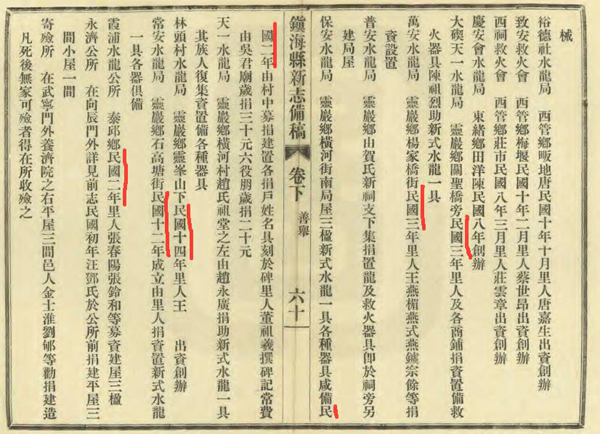 械
裕德社水龍局　西管鄉畈地唐民國十年十月里人唐嘉生出資創辦
致安救火會　西管鄉梅堰民國十年二月里人蔡世昂出資創辦
西祠救火會　西管鄉莊市民國八年三月里人莊雲章出資創辦
慶安會水龍局　東緒鄉田洋陳民國八年創辦
大碶天一水龍局　靈巖鄉關聖橋旁民國三年里人及各商鋪捐資置備救
火器具陳祖烈助新式水龍一具
萬安水龍局　靈巖鄉楊家橋街民國三年里人王燕楣燕式燕鏞宗餘等捐
資設置
普安水龍局　靈巖鄉由賀氏新祠支下集捐置龍及救火器具卽於祠旁另
建局屋
保安水龍局　靈巖鄉橫河街南局屋三楹新式水龍一具各種器具咸備民
鎭海縣新志備稿　卷下　善舉　六十
國二年由村中募捐建置各捐戶姓名具刻於碑里人董祖羲撰碑記常費
由吳君廟歲捐三十元六役朋歲捐二十元
天一水龍局　靈巖鄉橫河村趙氏祖堂之左由趙永廣捐助新式水龍一具
其族人復集資置備各種器具
林頭村水龍局　靈巖鄉靈峯山下民國十四年里人王　　出資創辦
常安水龍局　靈巖鄉石高塘街民國十二年成立由里人捐資置新式水龍
一具各器俱備
霞浦水龍公所　泰邱鄉民國二年里人張春陽張鈴和等募資建屋三楹
永濟公所　在向辰門外詳見前志民國初年汪鄧氏於公所前捐建平屋三
間小屋一間
寄殮所　在武寧門外養濟院之右平屋三間邑人金士淮劉邨等勸捐建造
凡死後無家可殮者得在所收殮之